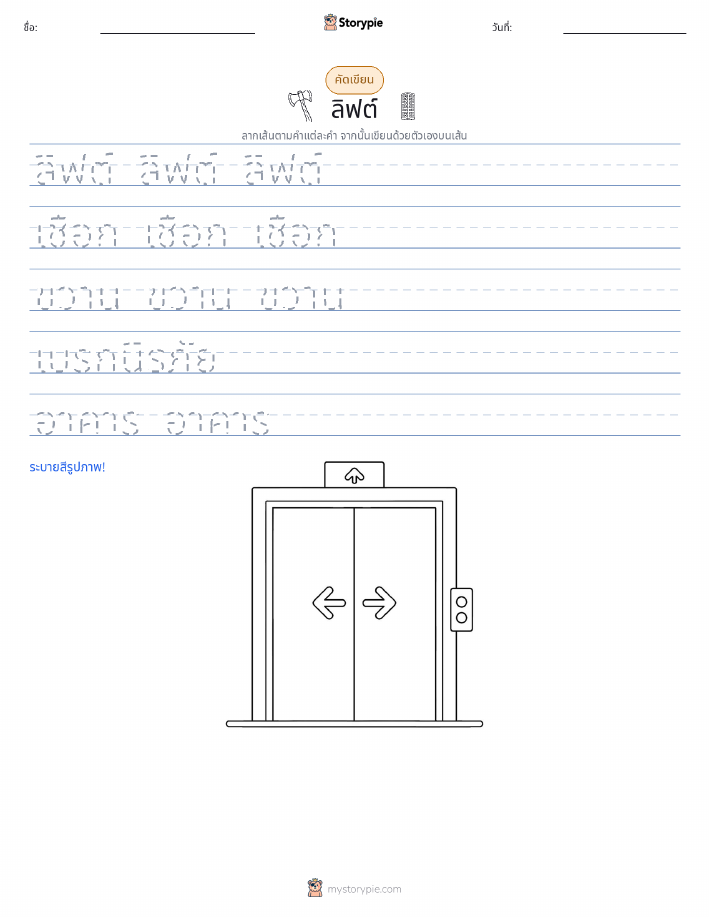 ชื่อ: Storypie วันที่:
คัดเขียน
ลิฟต์
ลากเส้นตามคำแต่ละคำ จากนั้นเขียนด้วยตัวเองบนเส้น
ลิฟต์ ลิฟต์ ลิฟต์
เชือก เชือก เชือก
ขวาน ขวาน ขวาน
เบรกนิรภัย
อาคาร อาคาร
ระบายสีรูปภาพ!
mystorypie.com